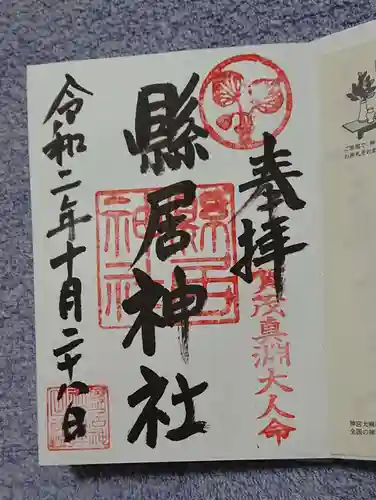 奉拝
賀茂真淵大人命
縣居神社
縣居神社
令和二年十月二十八日